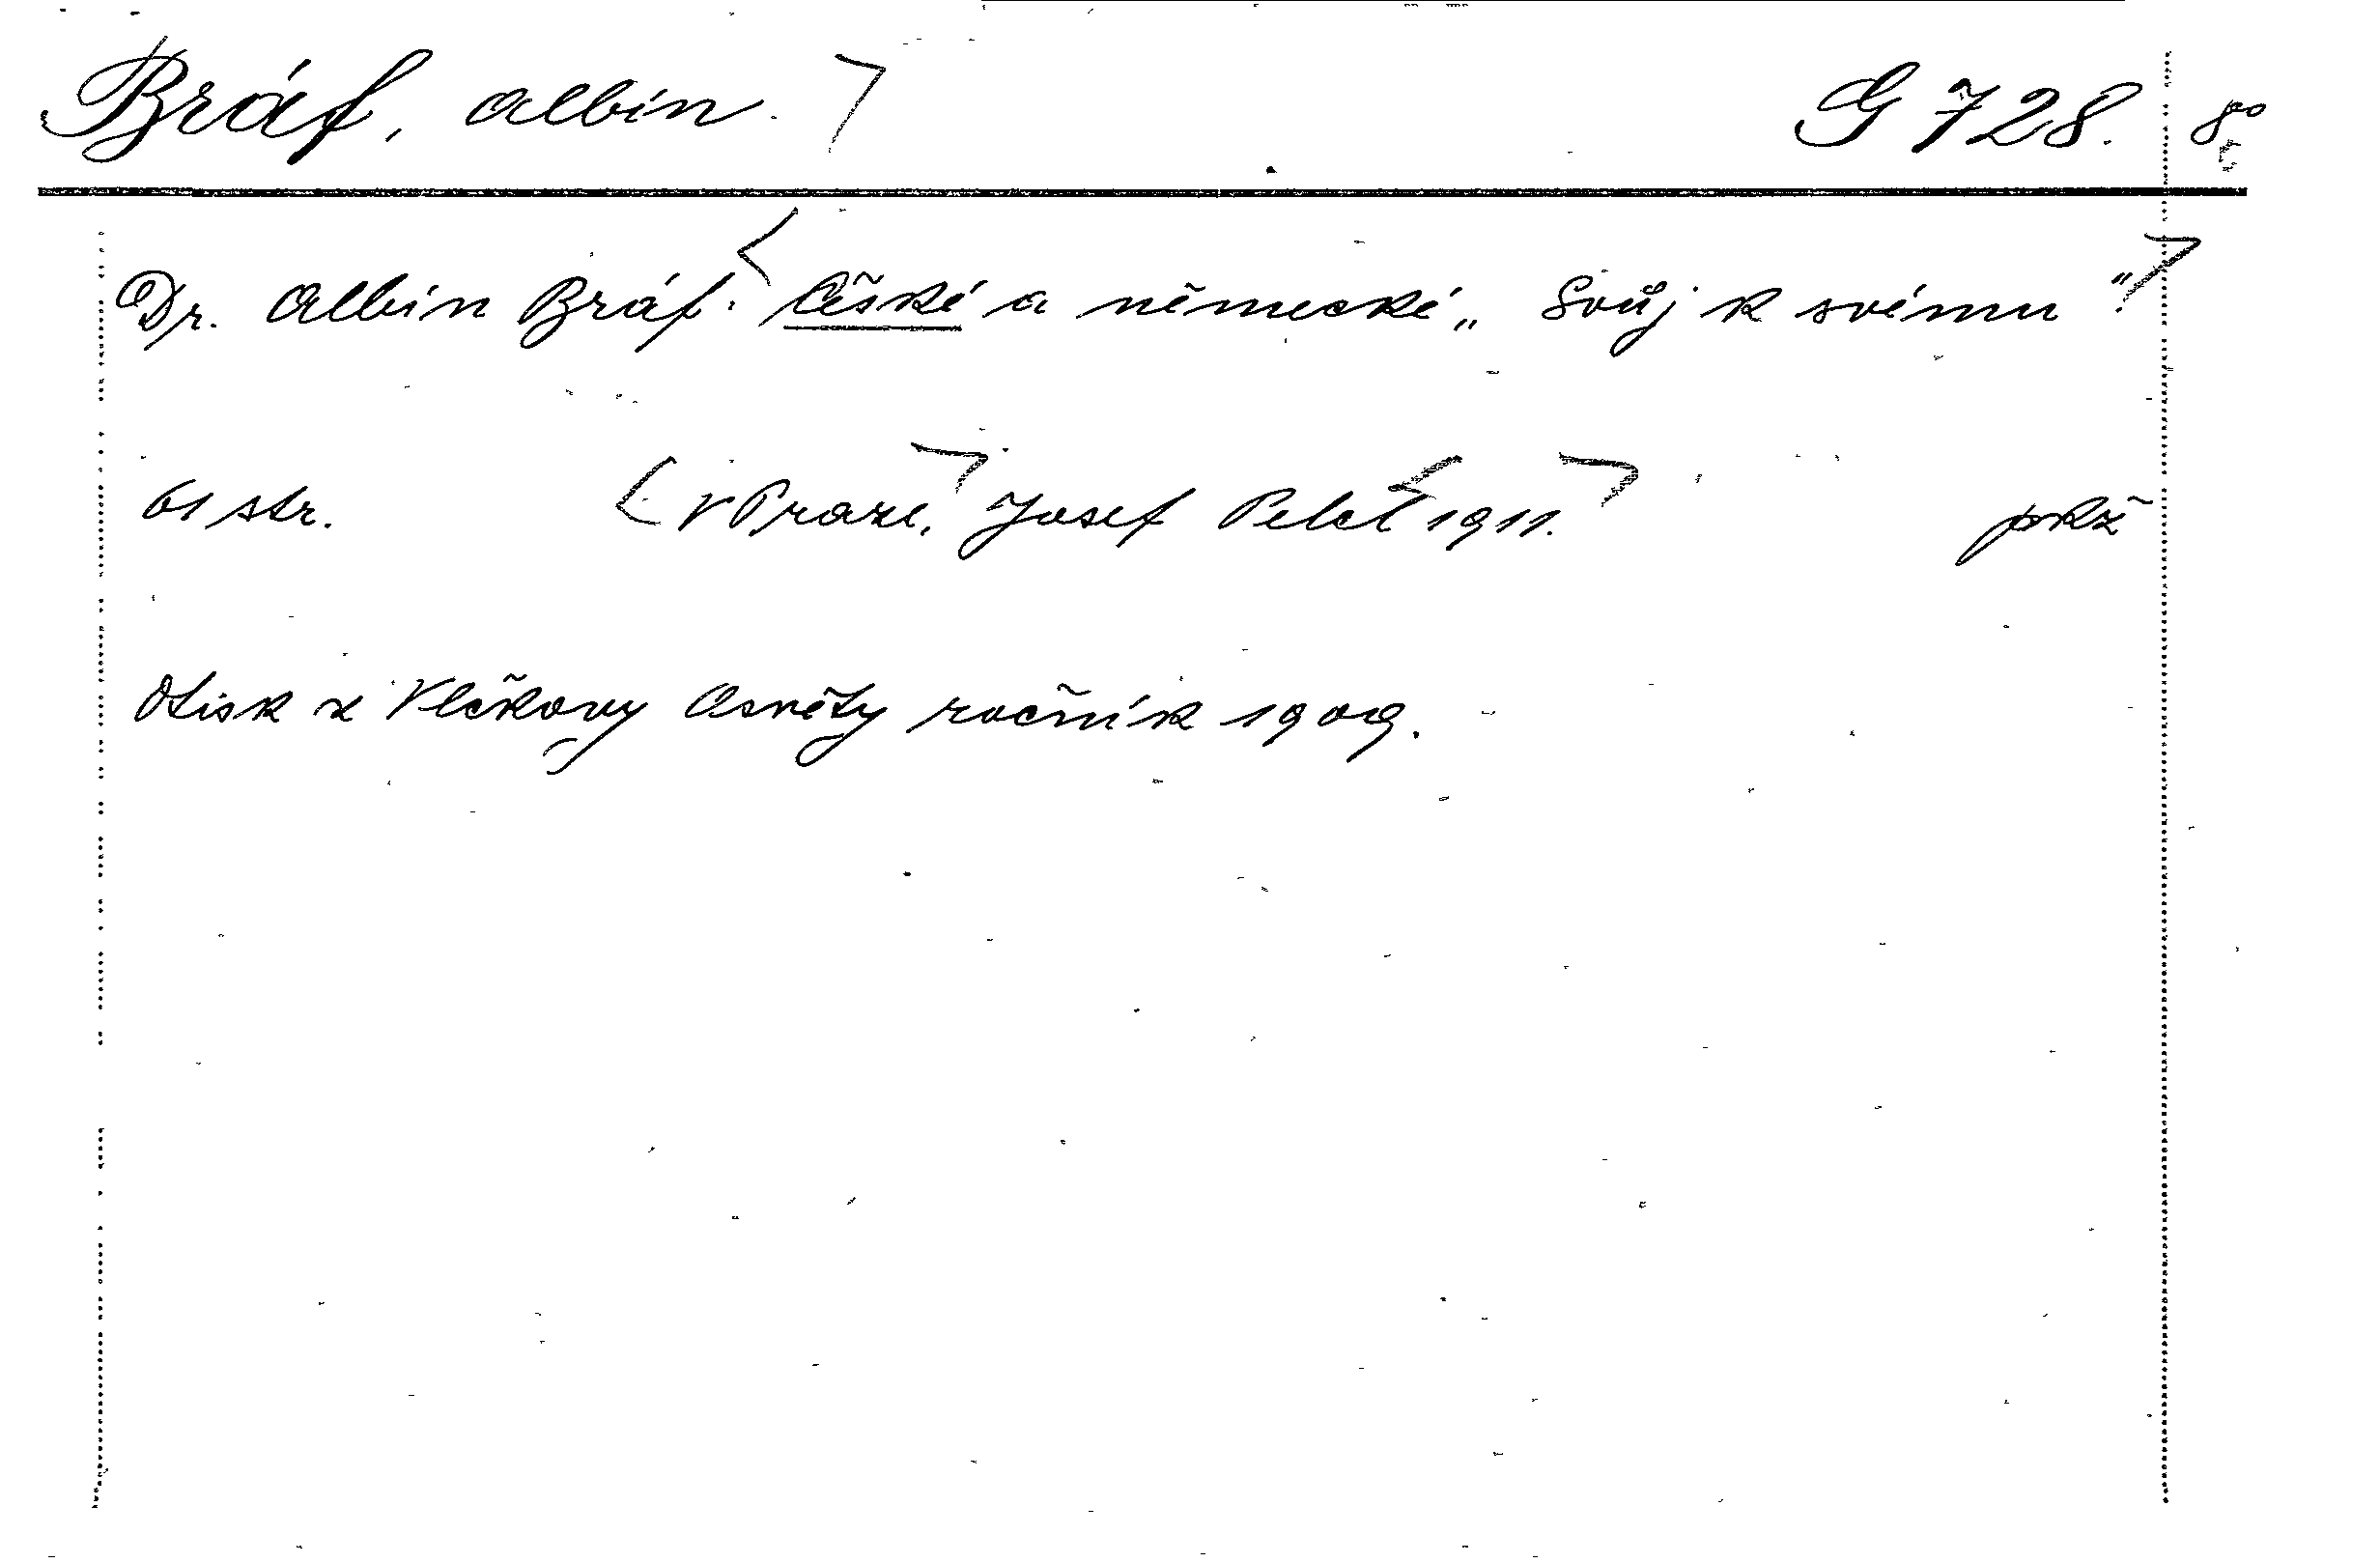 Bráf, Albín. G 728. 8°
Dr. Albín Bráf: České a německé „Svůj k svému“
61 str. V Praze, Josef Pelcl 1911. pkž
Otisk z Vlčkovy Osvěty ročník 1909.